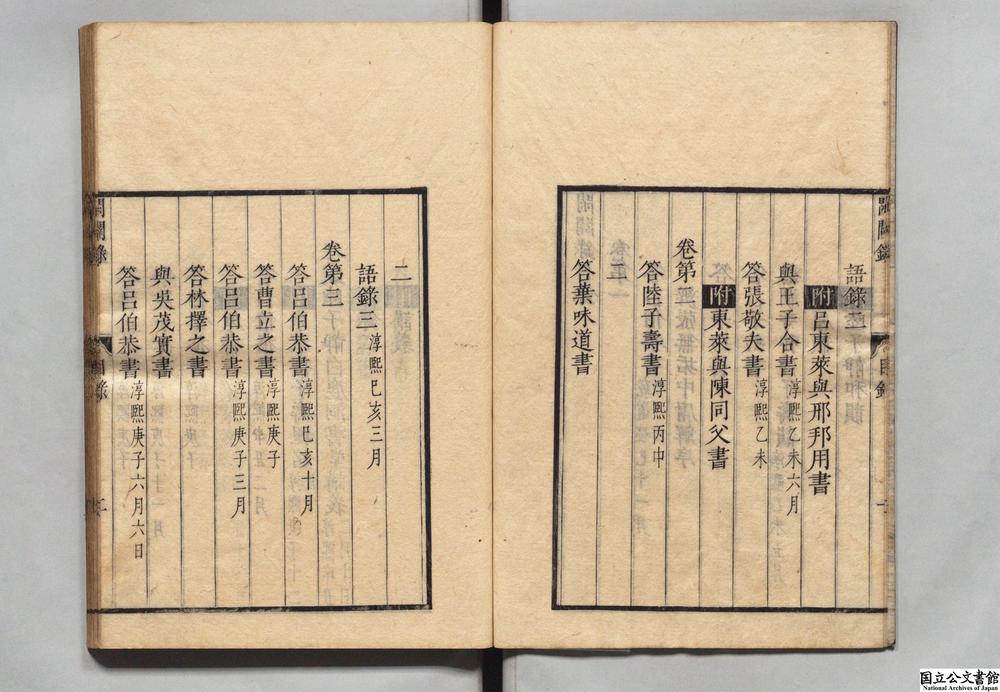 語錄
附 呂東萊與邢邦用書
與王子合書 淳熙乙未六月
答張敬夫書 淳熙乙未
附 東萊與陳同父書
卷第
答陸子壽書 淳熙丙申
答葉味道書
二
語錄三 淳熙己亥三月
卷第三
答呂伯恭書 淳熙己亥十月
答曹立之書 淳熙庚子
答呂伯恭書 淳熙庚子三月
答林擇之書
與吳茂實書
答呂伯恭書 淳熙庚子六月六日
国立公文書館
National Archives of Japan